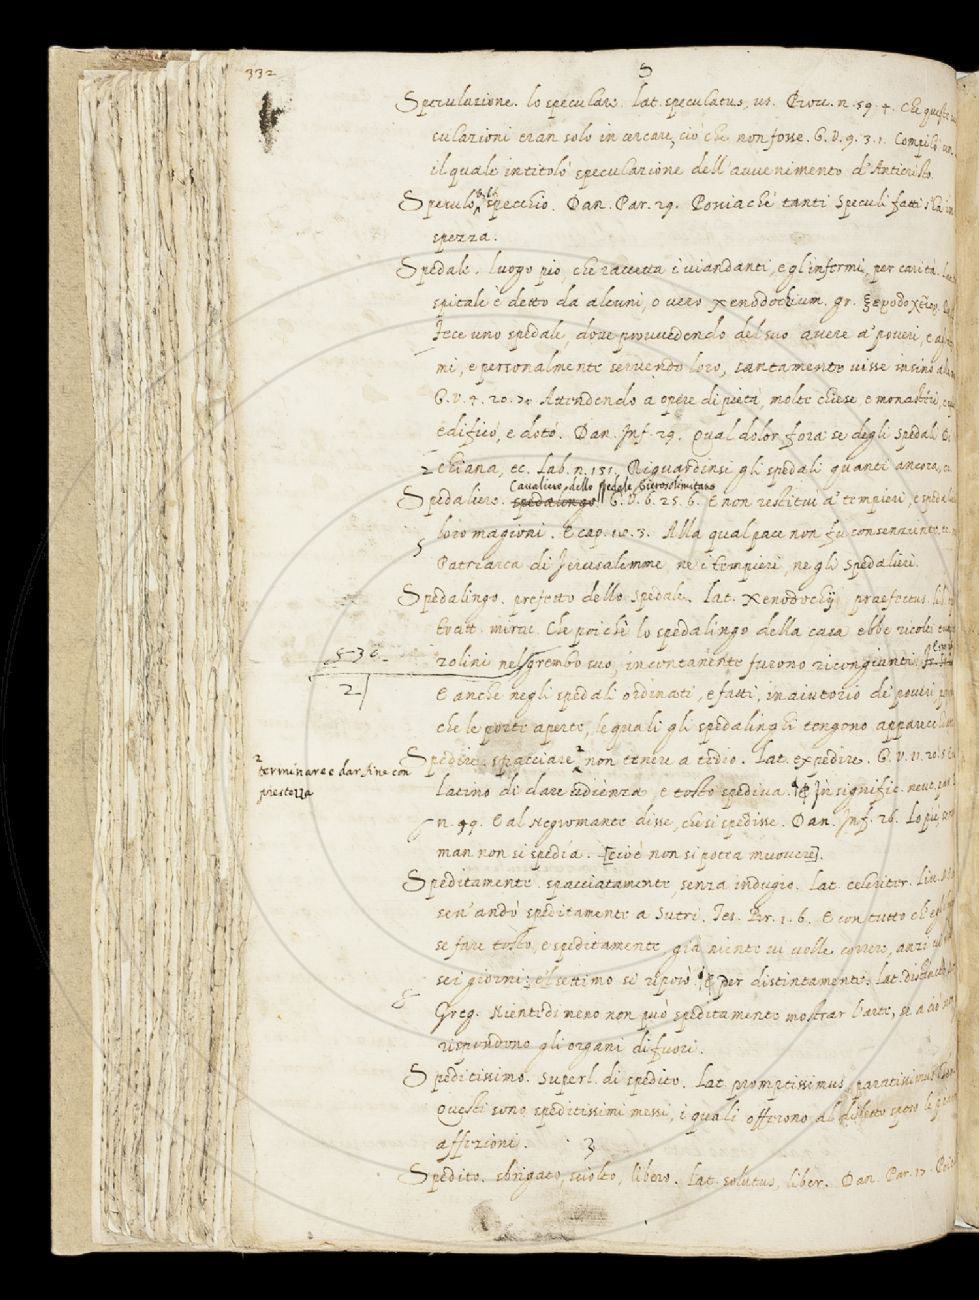 332
S
Speculazione. lo speculare. Lat. speculatus, us. Prou. n. 59. 4. Che queste
culazioni eran solo in cercare ciò che non fosse. G. V. 9. 3. 1. Compilò
il quale intitolò speculazione dell'auuenimento d'Anticristo.
Speculo, specchio. Dan. Par. 29. Posciachè tanti speculi fatti s'ha in
spezza.
Spedale. luogo pio, che raccetta i uiandanti, e gl'infermi, per carità.
spitale è detto da alcuni, o uero xenodochium. gr.
Fece uno spedale, doue prouuedendo del suo auere a' poueri, e
mi, e personalmente seruendo loro, santamente uisse insino
G. V. 4. 20. Attendendo a opere di pietà, molte chiese e monasteri,
edificò, e dotò. Dan. Inf. 29. Qual dolor fora se degli spedali
chiana, ec. Lab. n. 151. Riguardinsi gli spedali quanti ancora,
Caualiere dello spedale Gierosolimitano
Spedaliere. spedalingo G. V. 6. 25. 6. E non restituì a' tempieri, e
loro magioni. E cap. 3. Alla qual pace non fu consenziente,
Patriarca di Jerusalemme, nè i tempieri, nè gli spedalieri.
Spedalingo. prefetto dello spedale. Lat. Xenodochij praefectus.
tratt. Che poichè lo spedalingo della casa ebbe ricolti
zolini nel grembo suo, incontanente furono ricongiunti.
2
E anche negli spedali ordinati, e fatti, in aiutorio dei poueri
che le porte aperte, le quali gli spedalinghi tengono
Spedire. spacciare 2 non tenere a tedio. Lat. expedire. G. V. 11. 20. 5
2
terminare e dar fine con
prestezza
latino di dare udienza, e tosto spediua. In signific. neut.
n. 49. E al negromante disse, che si spedisse. Dan. Inf. 26. Lo piè
man non si spedia. [cioè non si potea muouere].
Speditamente. spacciatamente, senza indugio. Lat. celeriter.
sen'andò speditamente a Sutri. Tes. Br. 1. 6. E con tutto ch'
se fare tosto, e speditamente, già niente ui uolle correre, anzi
sei giorni; e'l settimo si riposò. per distintamente. Lat.
Greg. Nientedimeno non può speditamente mostrar l'arte, se a ciò non
rispondono gli organi difuori.
Speditissimo. Superl. di spedito. Lat. promptissimus, paratissimus
Questi sono speditissimi messi, i quali offerono al diletto sposo le
affezioni. 3
Spedito. sbrigato, sciolto, libero. Lat. solutus, liber. Dan. Par. 17.